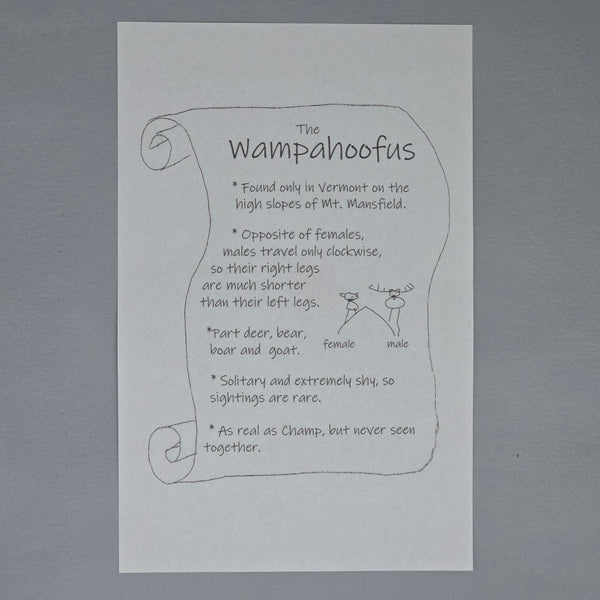 The
Wampahoofus
* Found only in Vermont on the
high slopes of Mt. Mansfield.
* Opposite of females,
males travel only clockwise,
so their right legs
are much shorter
than their left legs.
*Part deer, bear,
boar and goat.
female
male
* Solitary and extremely shy, so
sightings are rare.
* As real as Champ, but never seen
together.